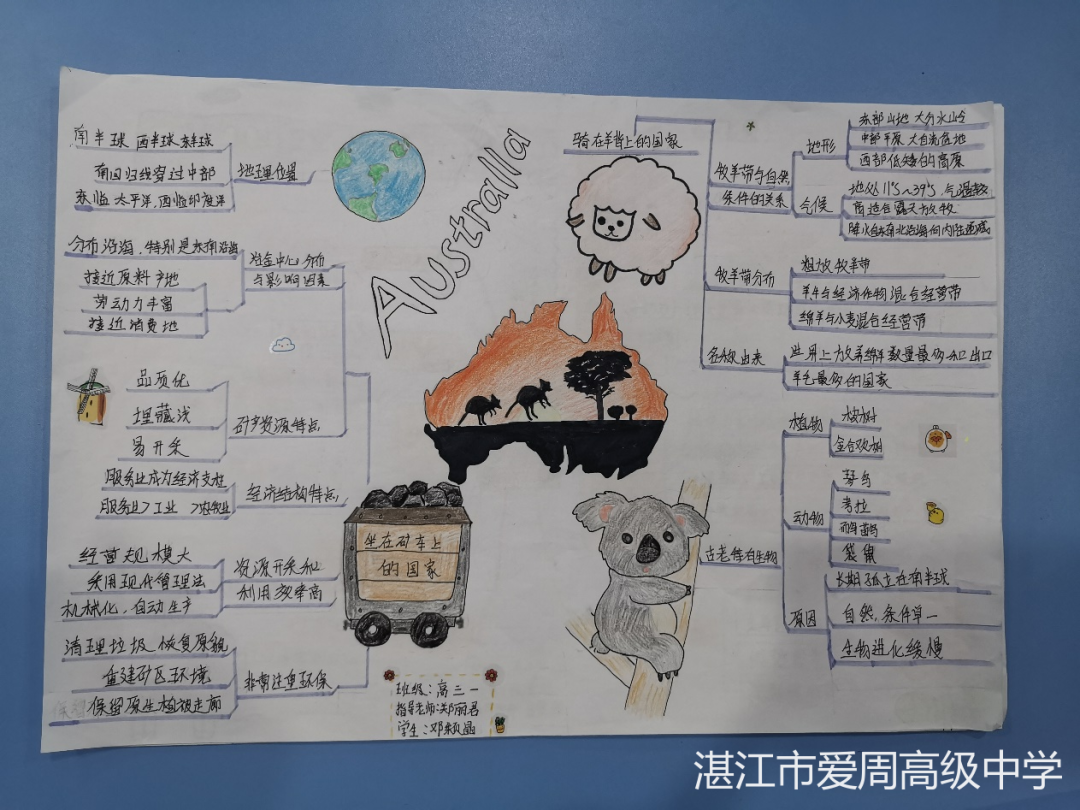 南半球 西半球 东半球
地理位置
南回归线穿过中部
东临太平洋,西临印度洋
分布沿海,特别是东南沿海
冶金中心分布
与影响因素
接近原料产地
劳动力丰富
接近消费地
品质优
埋藏浅
易开采
矿产资源特点
服务业成为经济支柱
服务业>工业 >农牧业
经济结构特点
经营规模大
采用现代管理法
机械化、自动生产
资源开采和
利用效率高
清理垃圾 恢复原貌
重建矿区环境
保留原生植被走廊
非常注重环保
Australla
坐在矿车上
的国家
班级:高三一
指导老师:郑丽君
学生:邓颖
骑在羊背上的国家
牧羊带与自然
条件的关系
地形
东部山地 大分水岭
中部平原 大自流盆地
西部低矮的高原
气候
地处11°S~39°S,气温
高适合露天放牧
降水自东南北沿海向内陆递减
牧羊带分布
粗放牧羊带
羊牛与经济作物混合经营带
绵羊与小麦混合经营带
名称由来
世界上放养绵羊数量最多和出口
羊毛最多的国家
古老特有生物
植物
桉树
金合欢树
动物
琴鸟
考拉
鸸鹋
袋鼠
原因
长期孤立在南半球
自然条件单一
生物进化缓慢
湛江市爱周高级中学